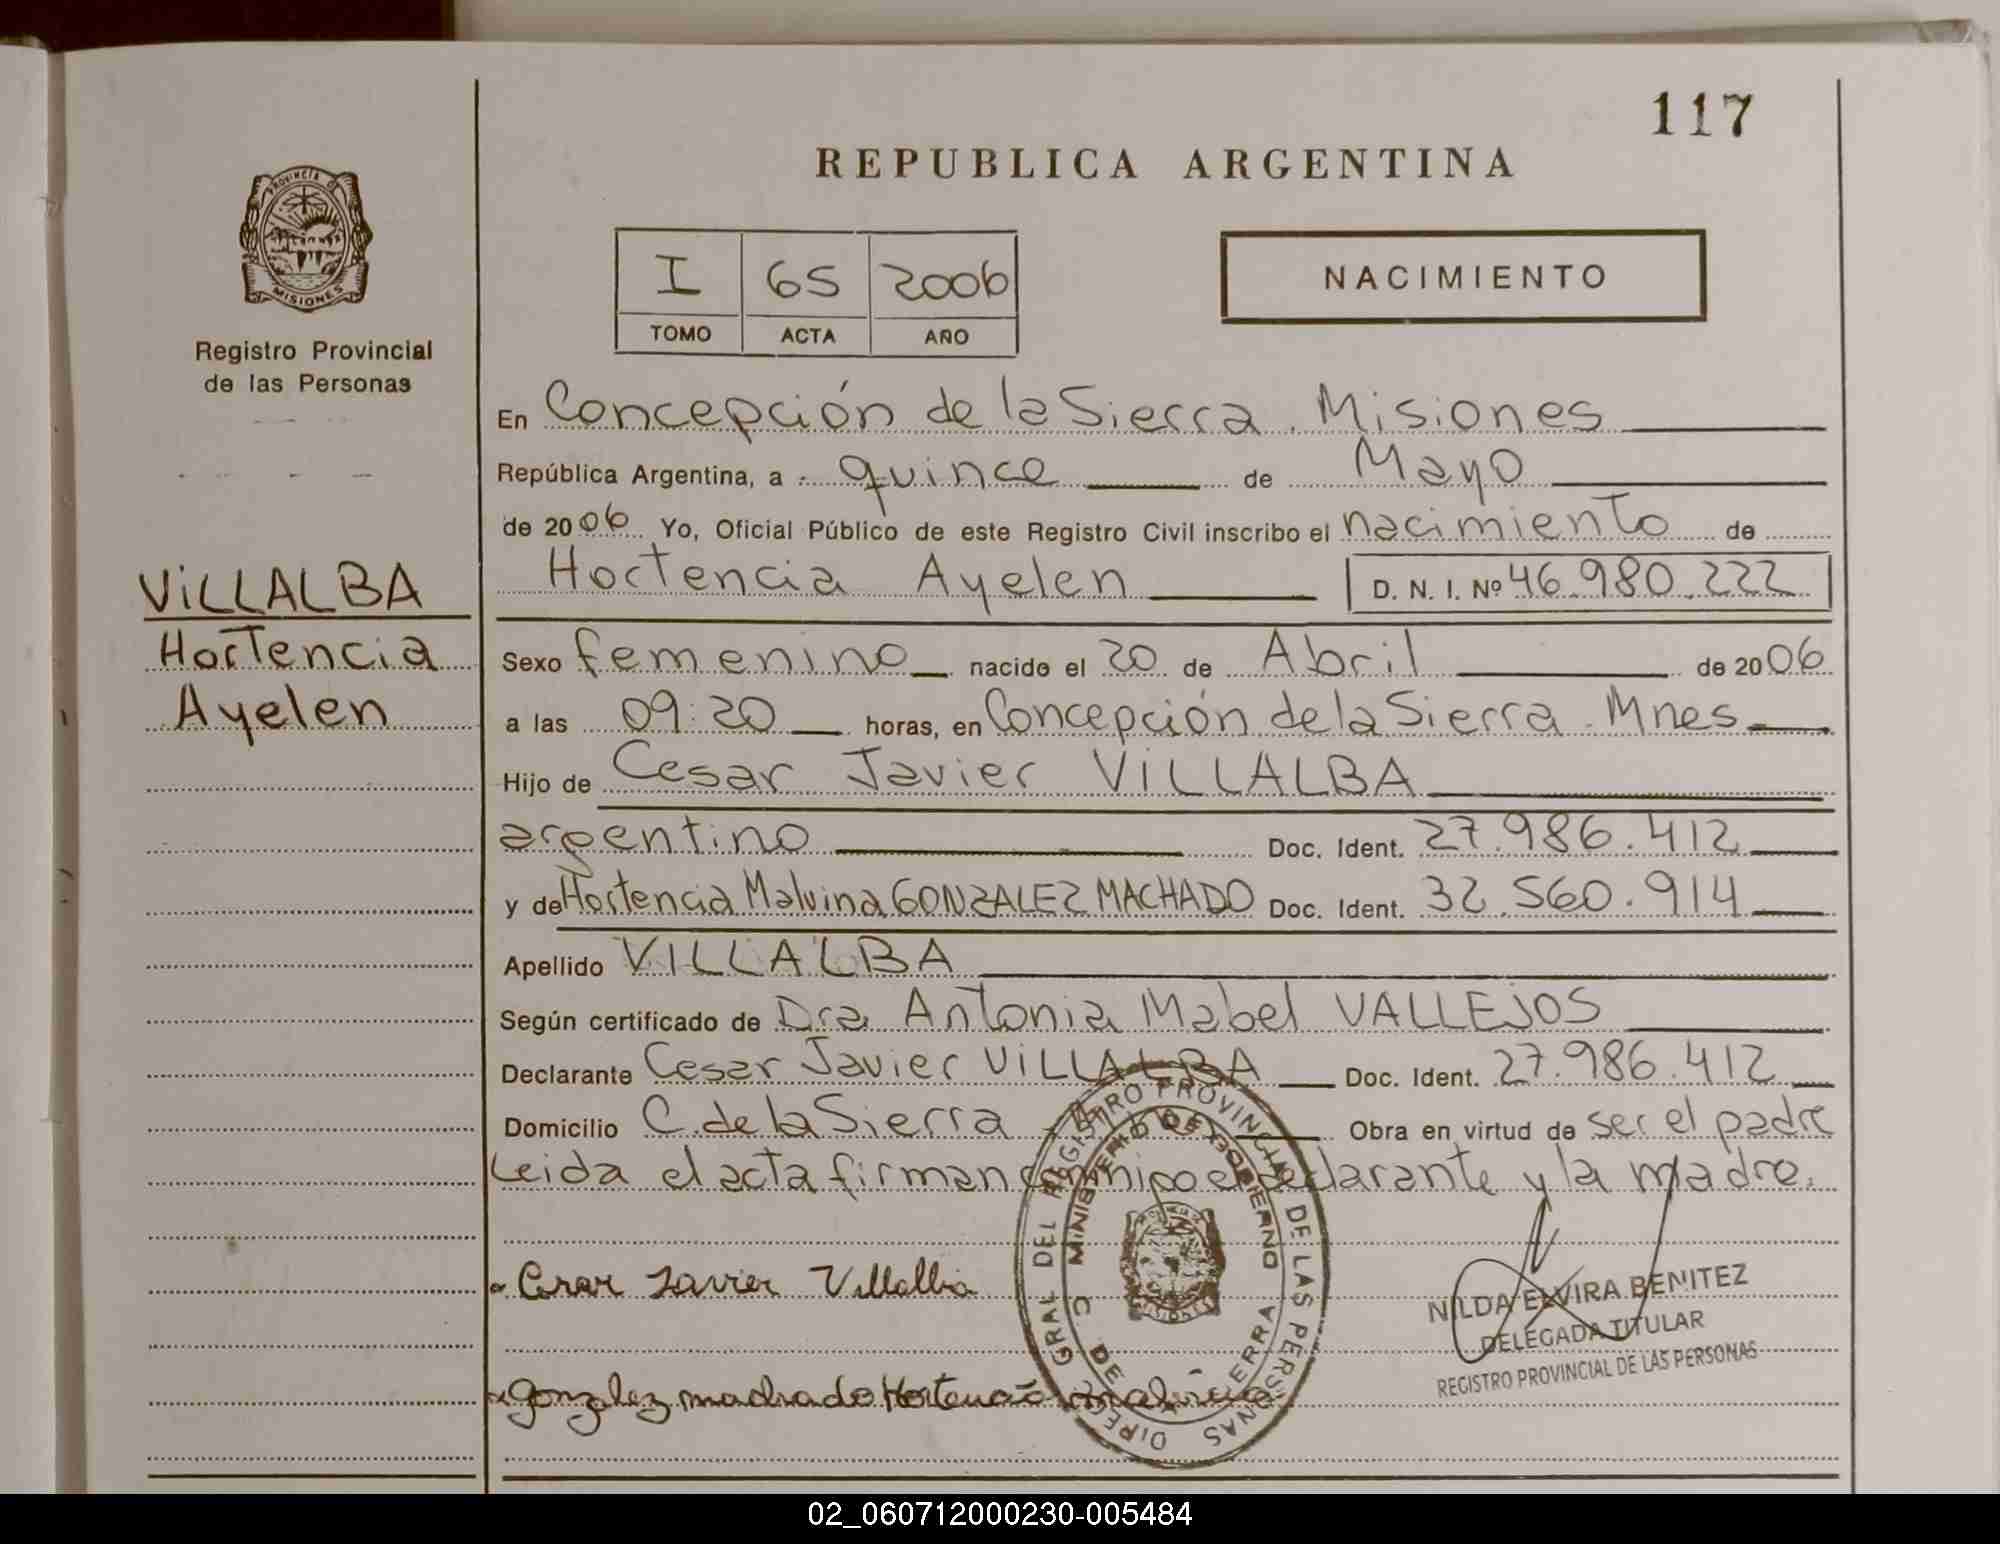 117
REPUBLICA ARGENTINA
PROVINCIA D
MISIONES
Registro Provincial
de las Personas
I 65 2006
TOMO ACTA AÑO
NACIMIENTO
En Concepción de la Sierra. Misiones
República Argentina, a quince de Mayo
de 2006 Yo, Oficial Público de este Registro Civil inscribo el nacimiento de
Hortencia Ayelen D. N. I. Nº 46.980.222
VILLALBA
Hortencia
Ayelen
Sexo femenino nacido el 20 de Abril de 2006
a las 09:20 horas, en Concepción de la Sierra. Mnes
Hijo de Cesar Javier VILLALBA
argentino Doc. Ident. 27.986.412
y de Hortencia Malvina GONZALEZ MACHADO Doc. Ident. 32.560.914
Apellido VILLALBA
Según certificado de Dra Antonia Mabel VALLEJOS
Declarante Cesar Javier VILLALBA Doc. Ident. 27.986.412
Domicilio C. de la Sierra Obra en virtud de ser el padre
Leida el acta firman conmigo el declarante y la madre.
Cesar Javier Villalba
Gonzalez machado Hortencia malvina
DIREC. GRAL DEL REGISTRO PROVINCIAL DE LAS PERSONAS
MINISTERIO DE GOBIERNO
C. DE SIERRA
NILDA ELVIRA BENITEZ
DELEGADA TITULAR
REGISTRO PROVINCIAL DE LAS PERSONAS
02_060712000230-005484